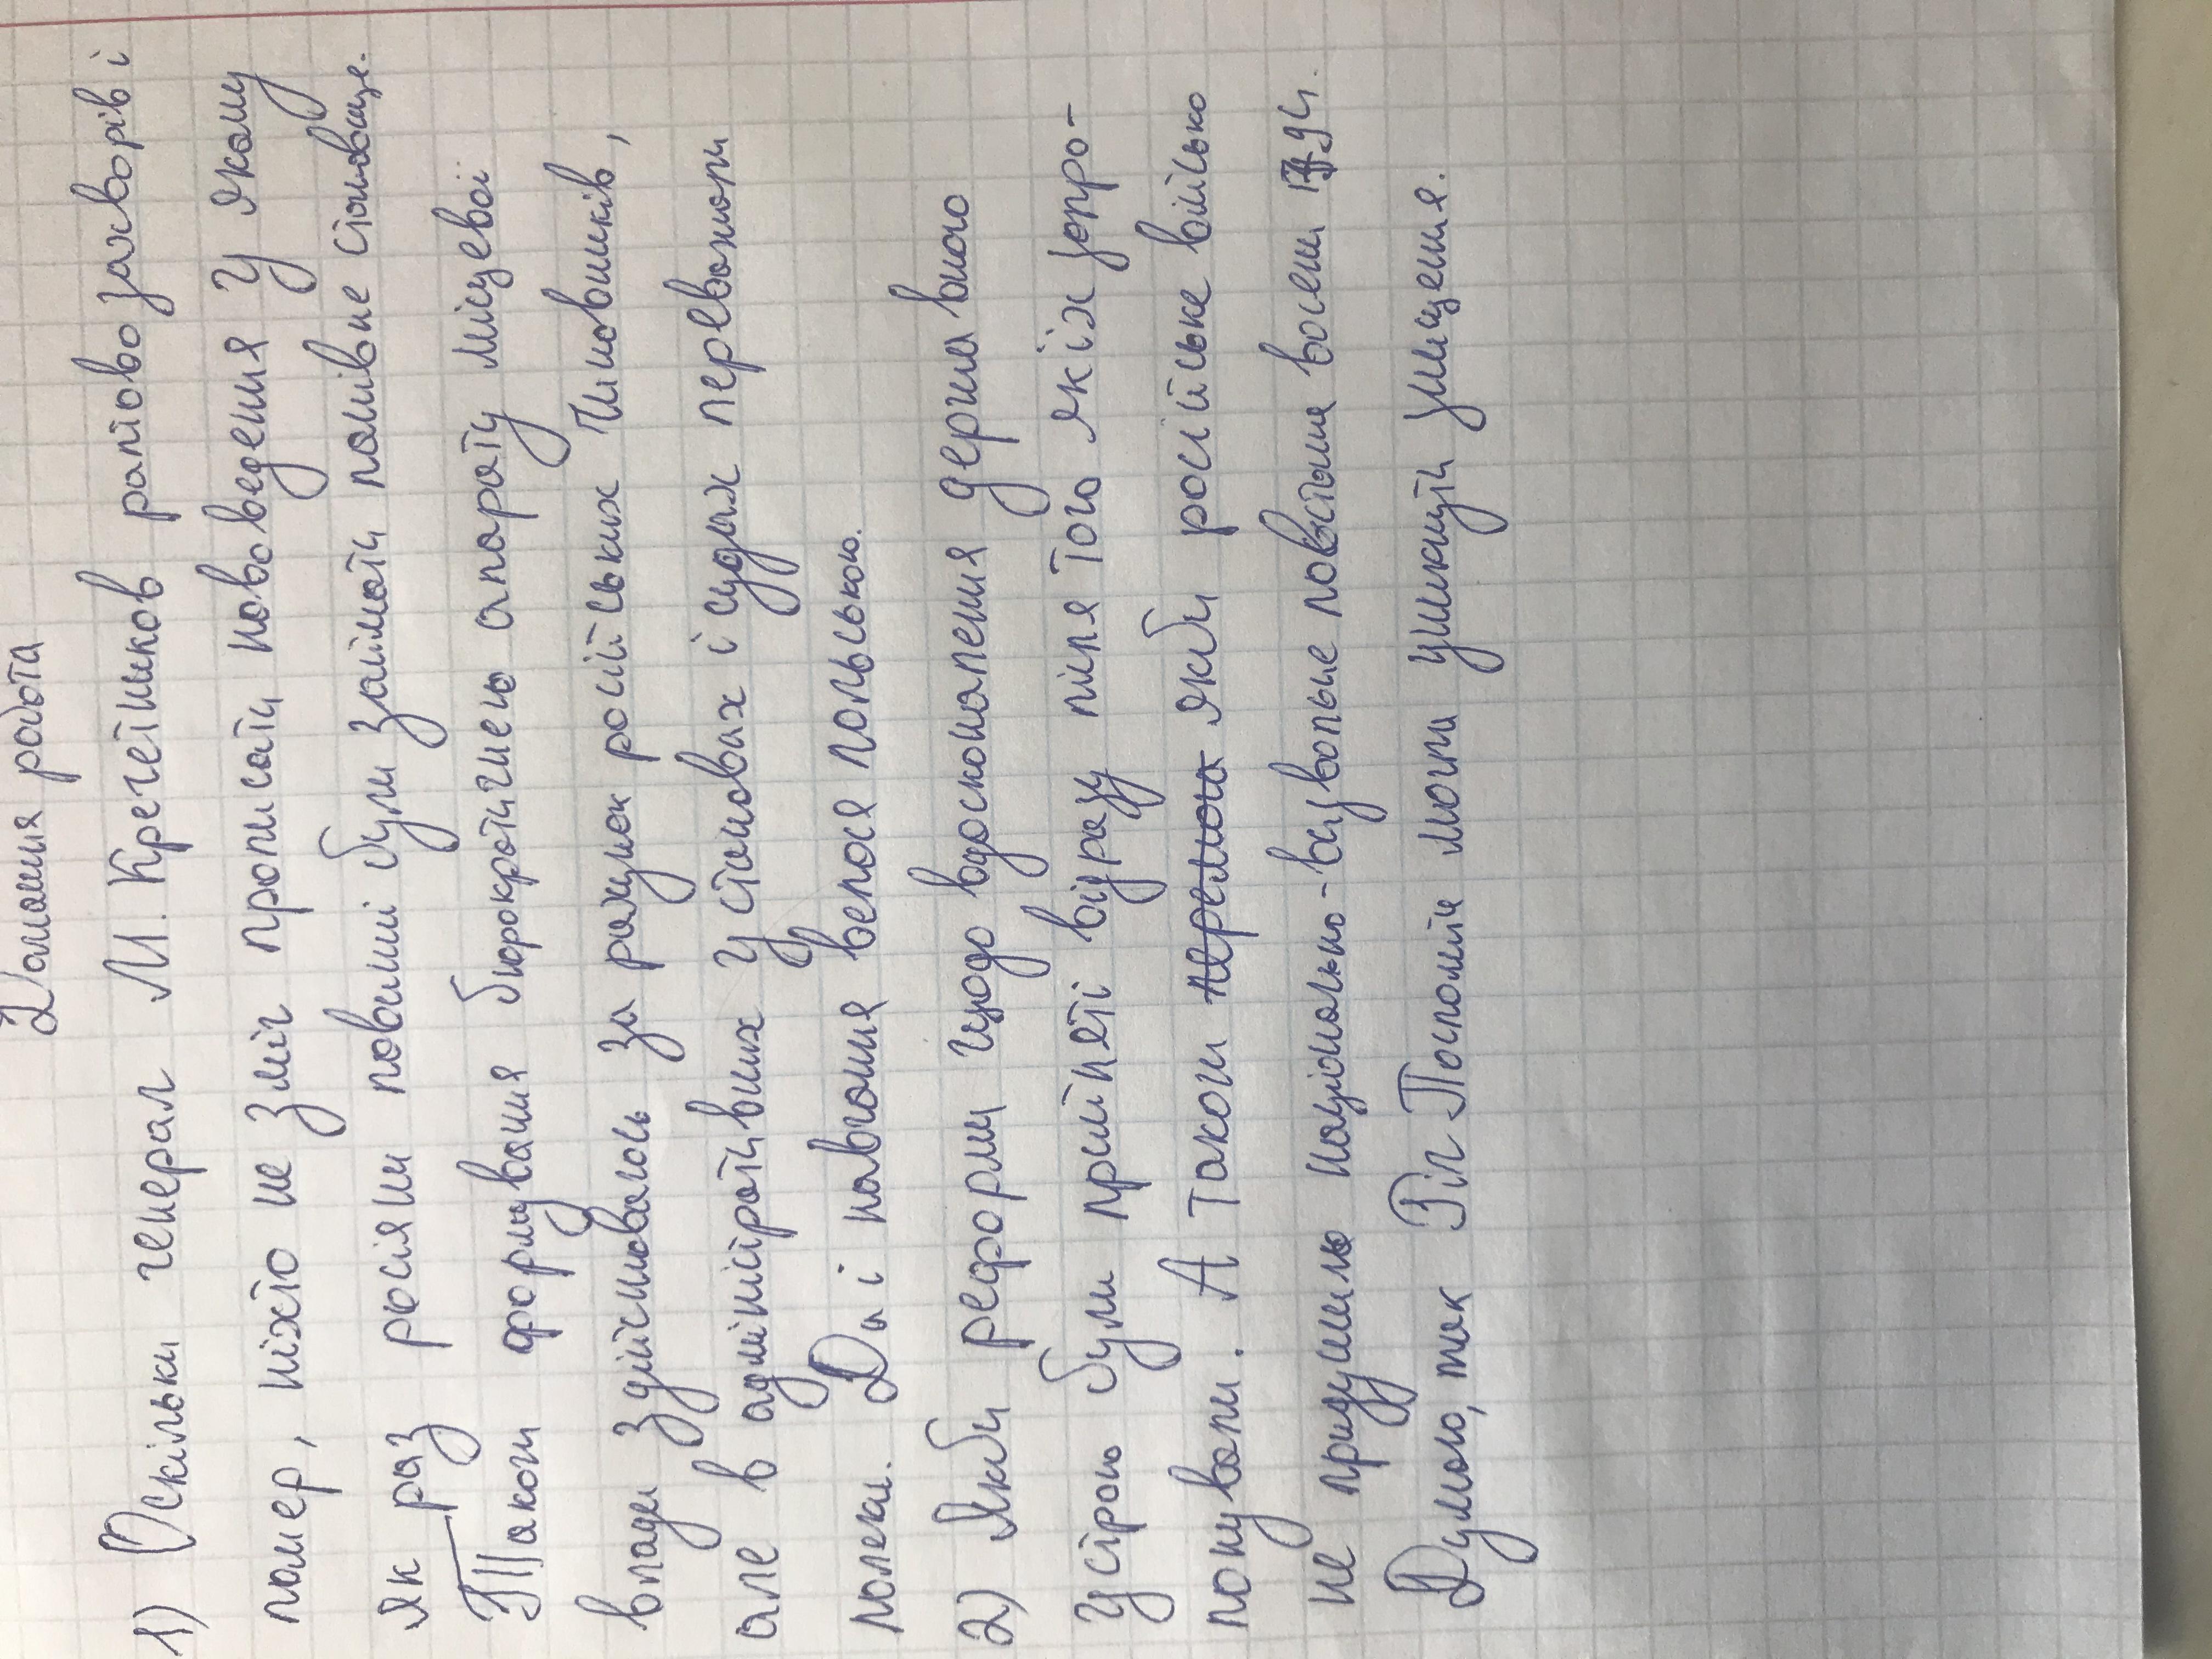 Домашня робота
1) Оскільки генерал М. Кречетніков раптово захворів і
помер, ніхто не зміг прописати нововедення у якому
як раз росіяни повинні були займати панівне становище.
Також формування бюрократичного апарату місцевої
влади здійснювалось за рахунек російських чиновників,
але в адміністративних установах і судах переважали
поляки. Да і навчання велося польською.
2) Якби реформи щодо вдосконалення державного
устрою були прийняті відразу після того як їх запро-
понували. А також якби російське військо
не придушило національно-визвольне повстання восени 1794.
Думаю, так Річ Посполита могла уникнути знищення.